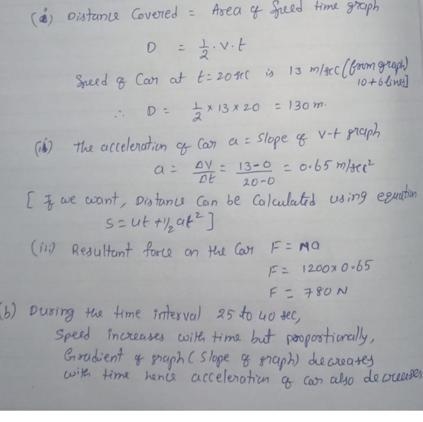 (i) Distance Covered = Area of Speed time graph
D = 1/2 . v . t
Speed of Car at t = 20 sec is 13 m/sec (from graph)
10+6 lines]
∴ D = 1/2 × 13 × 20 = 130 m.
(ii) The acceleration of Car a = Slope of v-t graph
a = ΔV/Δt = 13-0/20-0 = 0.65 m/sec²
[ If we want, Distance Can be Calculated using equation
S = ut + 1/2 at² ]
(iii) Resultant force on the Car F = ma
F = 1200 × 0.65
F = 780 N
(b) During the time interval 25 to 40 sec,
Speed increases with time but proportionally,
Gradient of graph (Slope of graph) decreases
with time hence acceleration of car also decreases